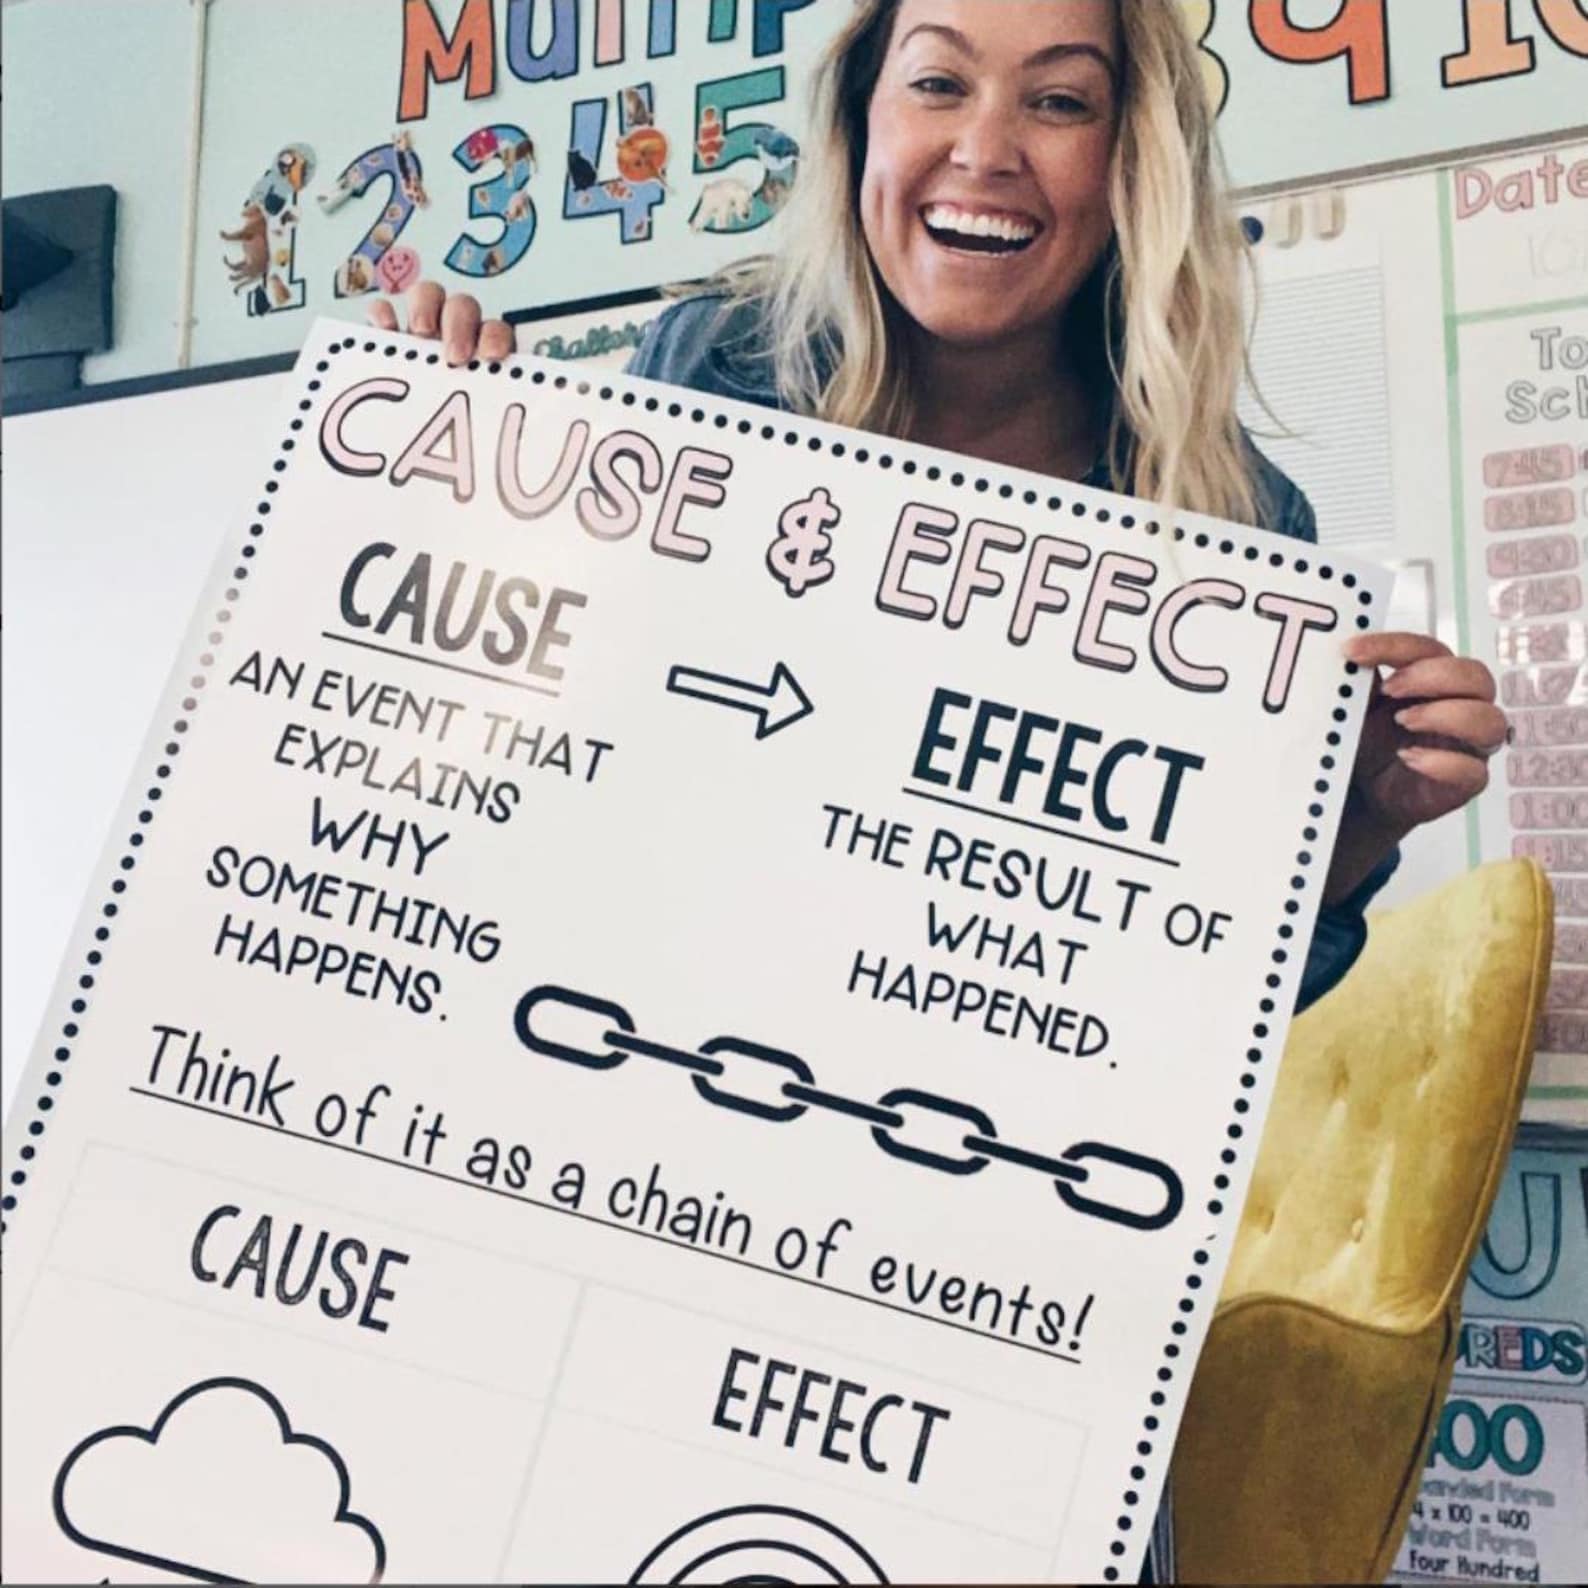 1 2 3 4 5
9 10
Date
CAUSE & EFFECT
CAUSE
AN EVENT THAT
EXPLAINS
WHY
SOMETHING
HAPPENS.
EFFECT
THE RESULT OF
WHAT
HAPPENED.
Think of it as a chain of events!
CAUSE
EFFECT
7:45
8:15
12:30
1:00
4 x 100 = 400
Word Form
Four Hundred